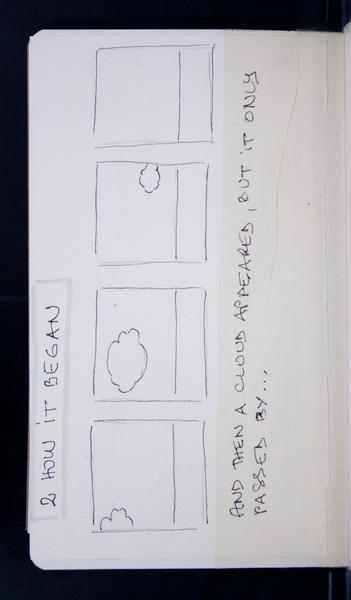 2 HOW iT BEGAN
AND THEN A CLOUD APPEARED, BUT iT ONLY
PASSED BY...